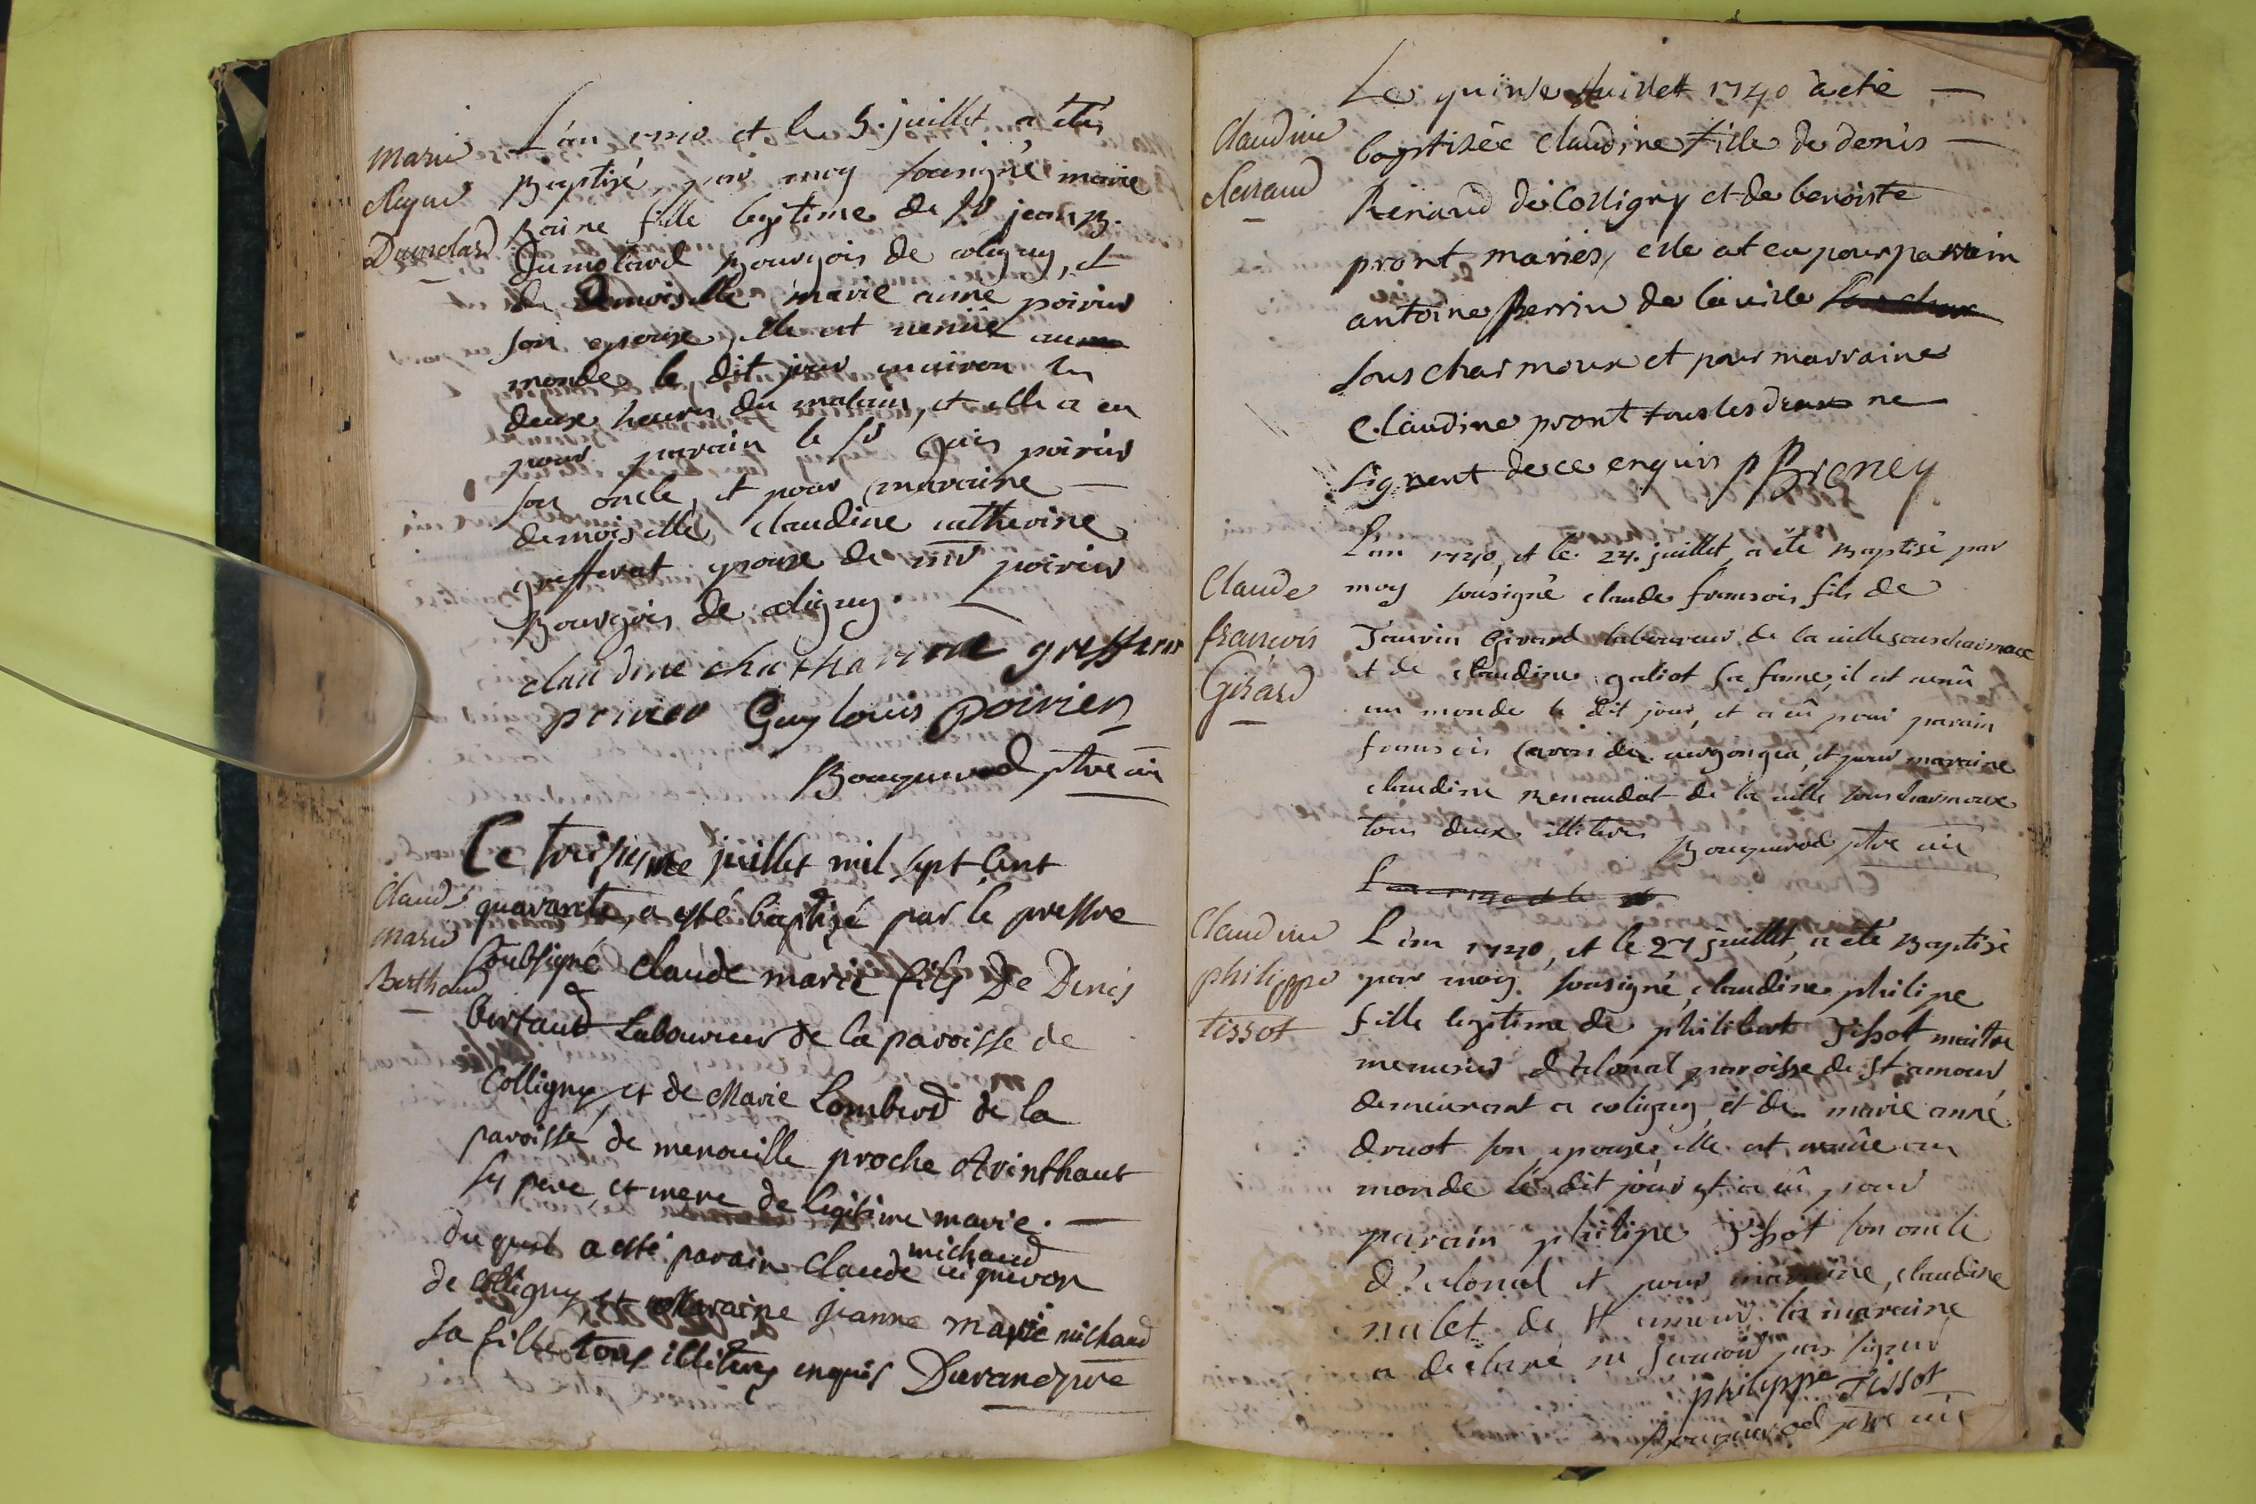 Marie
Reyne
Dumolard
L'an 1740 et le 5. juillet a étés
Baptisé, par moy sousigné marie
Raine fille legitime de Sr jean B.
Dumolard Bourgois de coligny, et
de Demoiselle marie anne poirier
son epouse, elle est venüe au
monde le dit jour environ les
deux heures du matain, et elle a eu
pour parain le Sr Louis poirier
son oncle, et pour maraine
demoiselle claudine catherine
grefferat epouse de mr poirier
Bourgois de coligny.
claudine chatharine grefferat
poirier Guy louis poirier
Bouquerod ptre vic
Claude
marie
Berthaud
Ce troisiesme juillet mil sept Cent
quarante, a esté baptizé par le prestre
soubsigné claude marie fils De Denis
Bertaud Laboureur de la paroisse de
Colligny et de Marie Lomberd de la
paroisse de menouille proche Arinthaut
ses pere et mere de legitime marie.
duquel a esté parain Claude michaud vigneron
de Colligny et Maraine jeanne marie michaud
sa fille tous illiterez enquis Durand ptre
Claudine
Renaud
Le quinse Juillet 1740 à eté
baptisée claudine fille de denis
Renaud de Colligny et de benoiste
pront mariés, elle at eu pour parrain
antoine Perrin de la ville
sous charmoux et pour marraine
Claudine pront tous les deux ne
signent de ce enquis P Breney
Claude
françois
Girard
L'an 1740, et le 24. juillet, a été Baptisé par
moy sousigné claude fransois fils de
Taurin Girard laboureur de la ville sous charmoux
et de claudine galiot sa fame, il est venû
au monde le dit jour, et a eû pour parain
fransois et pour maraine
claudine Renaudat de la ville sous charmoux
tous deux illiteres Bouquerod ptre vic
L'an 1740 et le
Claudine
philippe
tissot
L'an 1740, et le 27 juillet, a été Baptisé
par moy sousigné, claudine philipe
fille legitime de philibert Tissot maitre
menusier d'alonal paroisse de St amour
demeurant a coligny, et de marie anne
druot son epouse, elle est venûe au
monde le dit jour et a eû pour
parain philipe Tissot son oncle
d'alonal et pour maraine, claudine
nalet de St amour, la maraine
a declaré ne scavoir pas signer
philippe Tissot
Bouquerod ptre vic